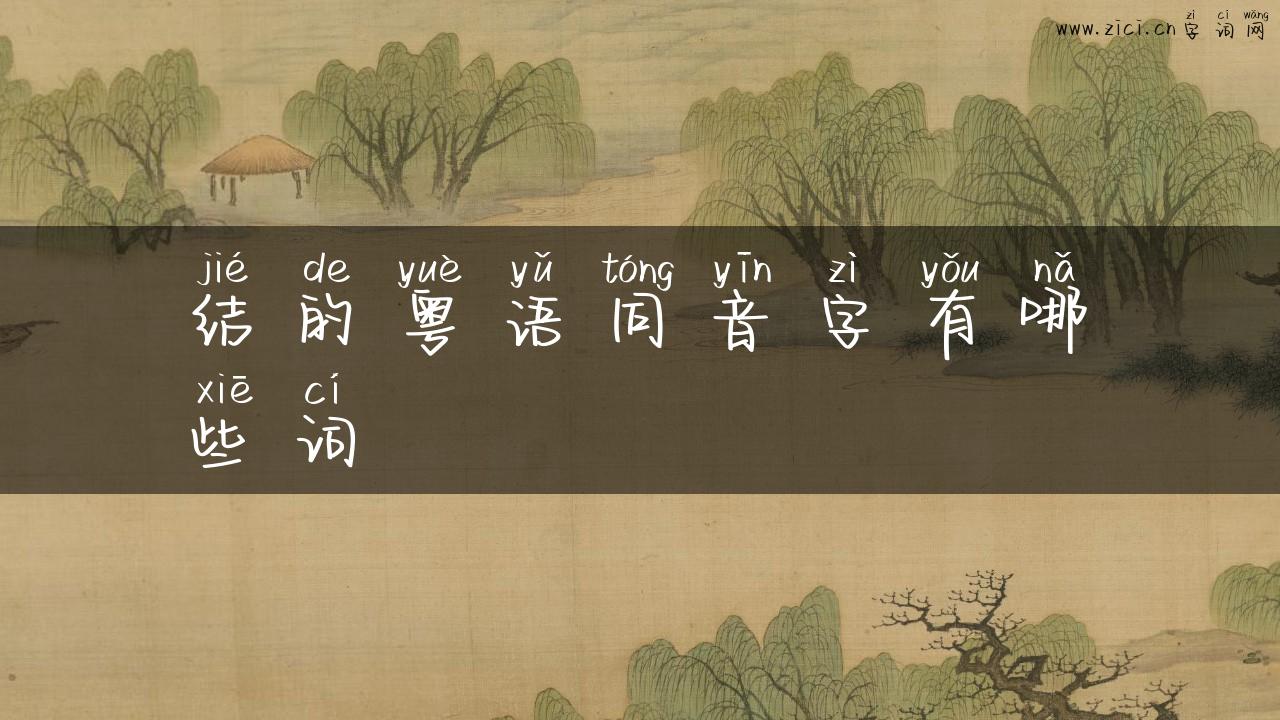 zì cí wǎng
www.zici.cn 字 词 网
jié de yuè yǔ tóng yīn zì yǒu nǎ
结 的 粤 语 同 音 字 有 哪
xiē cí
些 词